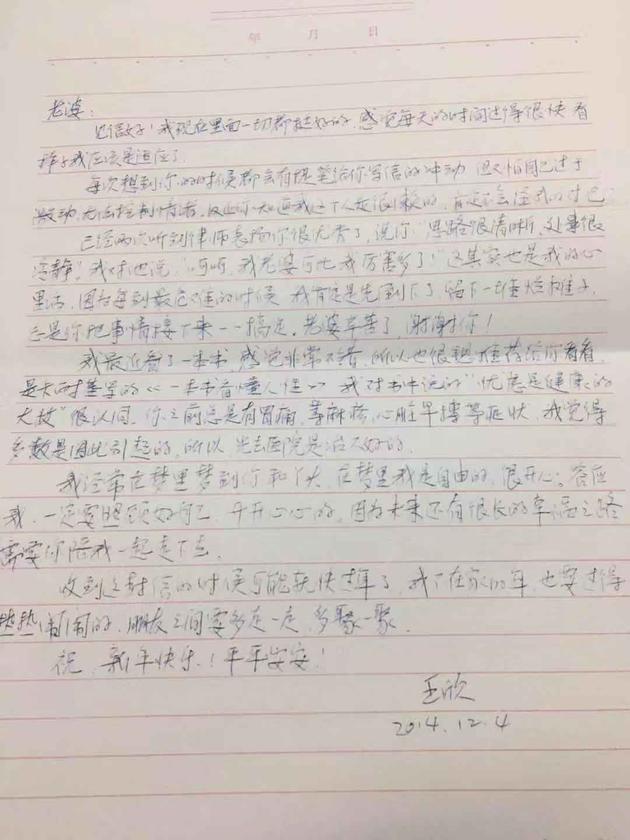 年 月 日
老婆：
见信好！我现在里面一切都挺好的，感觉每天的时间过得很快 看
样子我应该是适应了。
每次想到你的时候都会有提笔给你写信的冲动 但又怕自己过于
激动，无法控制情绪，
已经两次听到律师表扬你很优秀了，说你"思路很清晰，处事很
冷静"，我对他说，"呵呵，我老婆可比我厉害多了！"这其实也是我的心
里话，因为每到最危难的时候 我肯定是先倒下了，留下一堆烂摊子，
总是你把事情接下来一一搞定，老婆辛苦了，谢谢你！
我最近看了一本书，感觉非常不错，所以也很想推荐给你看看，
是卡耐基写的《一本书看懂人性》 我对书中说的"忧虑是健康的
大敌"很认同，你之前总是有胃痛，荨麻疹，心脏早搏等症状，我觉得
多数是因此引起的，所以 光去医院是治不好的。
我经常在梦里梦到你和丫头，在梦里我是自由的，很开心；答应
我，一定要照顾好自己，开开心心的，因为未来还有很长的幸福之路
需要你陪我一起走下去。
收到这封信的时候可能就快过年了，我不在家的年，也要过得
热热闹闹的，朋友之间要多走一走，多聚一聚。
祝，新年快乐！平平安安！
王欣
2014.12.4